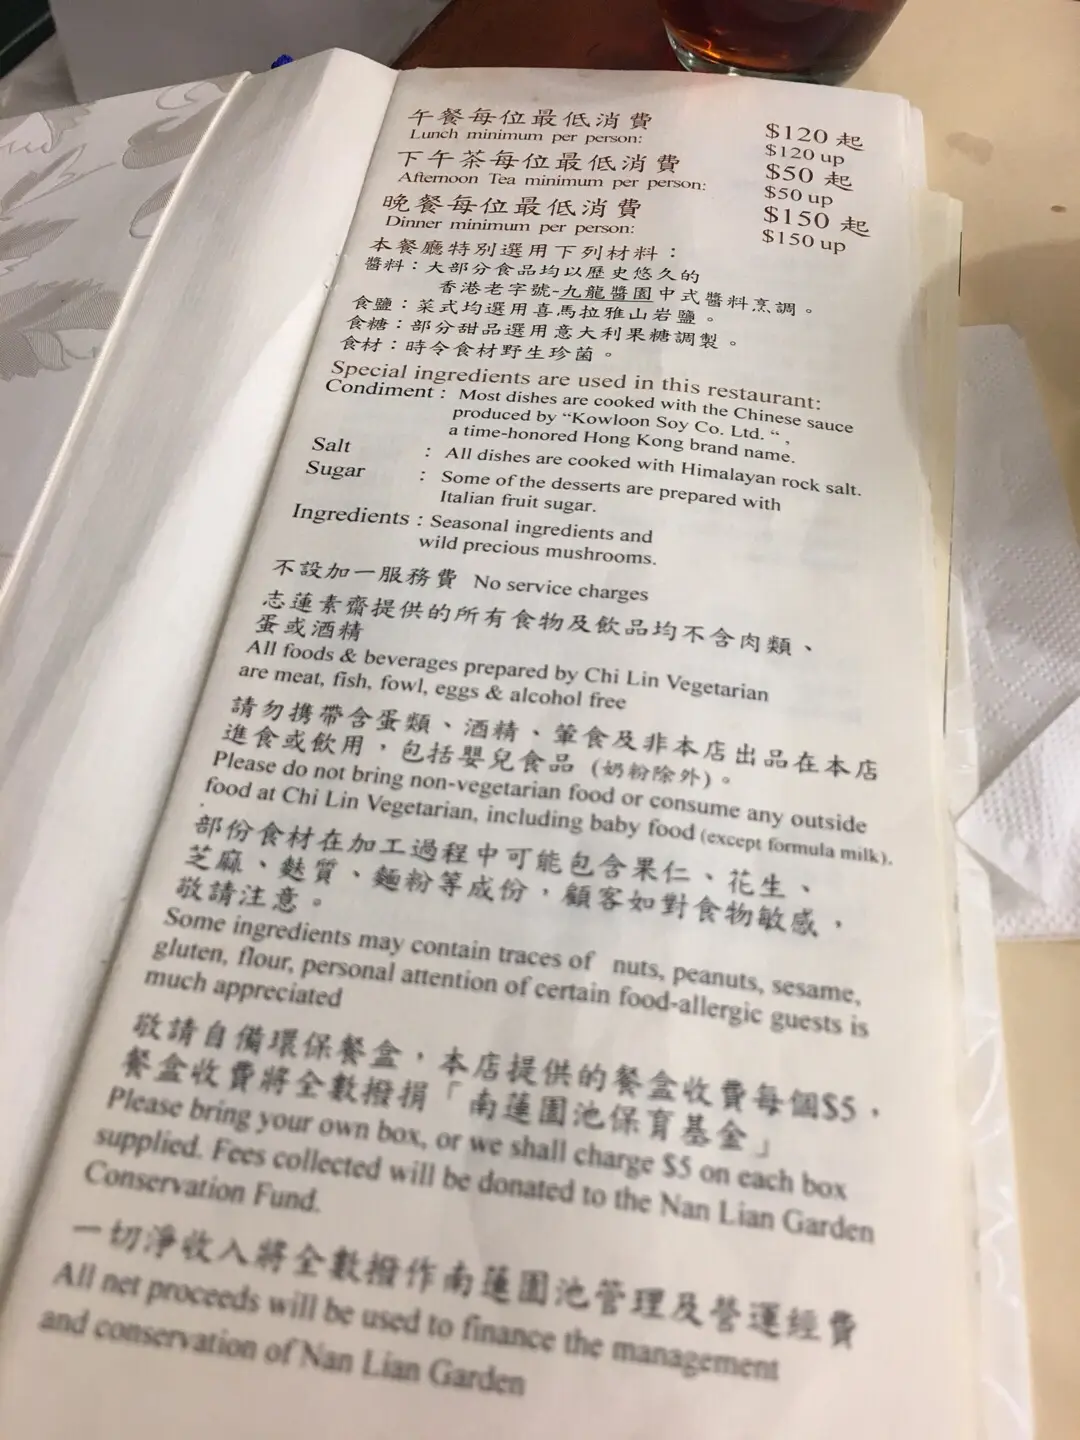 午餐每位最低消費 $120 起
Lunch minimum per person: $120 up
下午茶每位最低消費 $50 起
Afternoon Tea minimum per person: $50 up
晚餐每位最低消費 $150 起
Dinner minimum per person: $150 up
本餐廳特別選用下列材料：
醬料：大部分食品均以歷史悠久的
香港老字號-九龍醬園中式醬料烹調。
食鹽：菜式均選用喜馬拉雅山岩鹽。
食糖：部分甜品選用意大利果糖調製。
食材：時令食材野生珍菌。
Special ingredients are used in this restaurant:
Condiment : Most dishes are cooked with the Chinese sauce
produced by “Kowloon Soy Co. Ltd. “ ,
a time-honored Hong Kong brand name.
Salt : All dishes are cooked with Himalayan rock salt.
Sugar : Some of the desserts are prepared with
Italian fruit sugar.
Ingredients : Seasonal ingredients and
wild precious mushrooms.
不設加一服務費 No service charges
志蓮素齋提供的所有食物及飲品均不含肉類、
蛋或酒精
All foods & beverages prepared by Chi Lin Vegetarian
are meat, fish, fowl, eggs & alcohol free
請勿攜帶含蛋類、酒精、葷食及非本店出品在本店
進食或飲用，包括嬰兒食品 (奶粉除外)。
Please do not bring non-vegetarian food or consume any outside
food at Chi Lin Vegetarian, including baby food (except formula milk).
部份食材在加工過程中可能包含果仁、花生、
芝麻、麩質、麵粉等成份，顧客如對食物敏感，
敬請注意。
Some ingredients may contain traces of nuts, peanuts, sesame,
gluten, flour, personal attention of certain food-allergic guests is
much appreciated
敬請自備環保餐盒，本店提供的餐盒收費每個$5，
餐盒收費將全數撥捐「南蓮園池保育基金」
Please bring your own box, or we shall charge $5 on each box
supplied. Fees collected will be donated to the Nan Lian Garden
Conservation Fund.
一切淨收入將全數撥作南蓮園池管理及營運經費
All net proceeds will be used to finance the management
and conservation of Nan Lian Garden